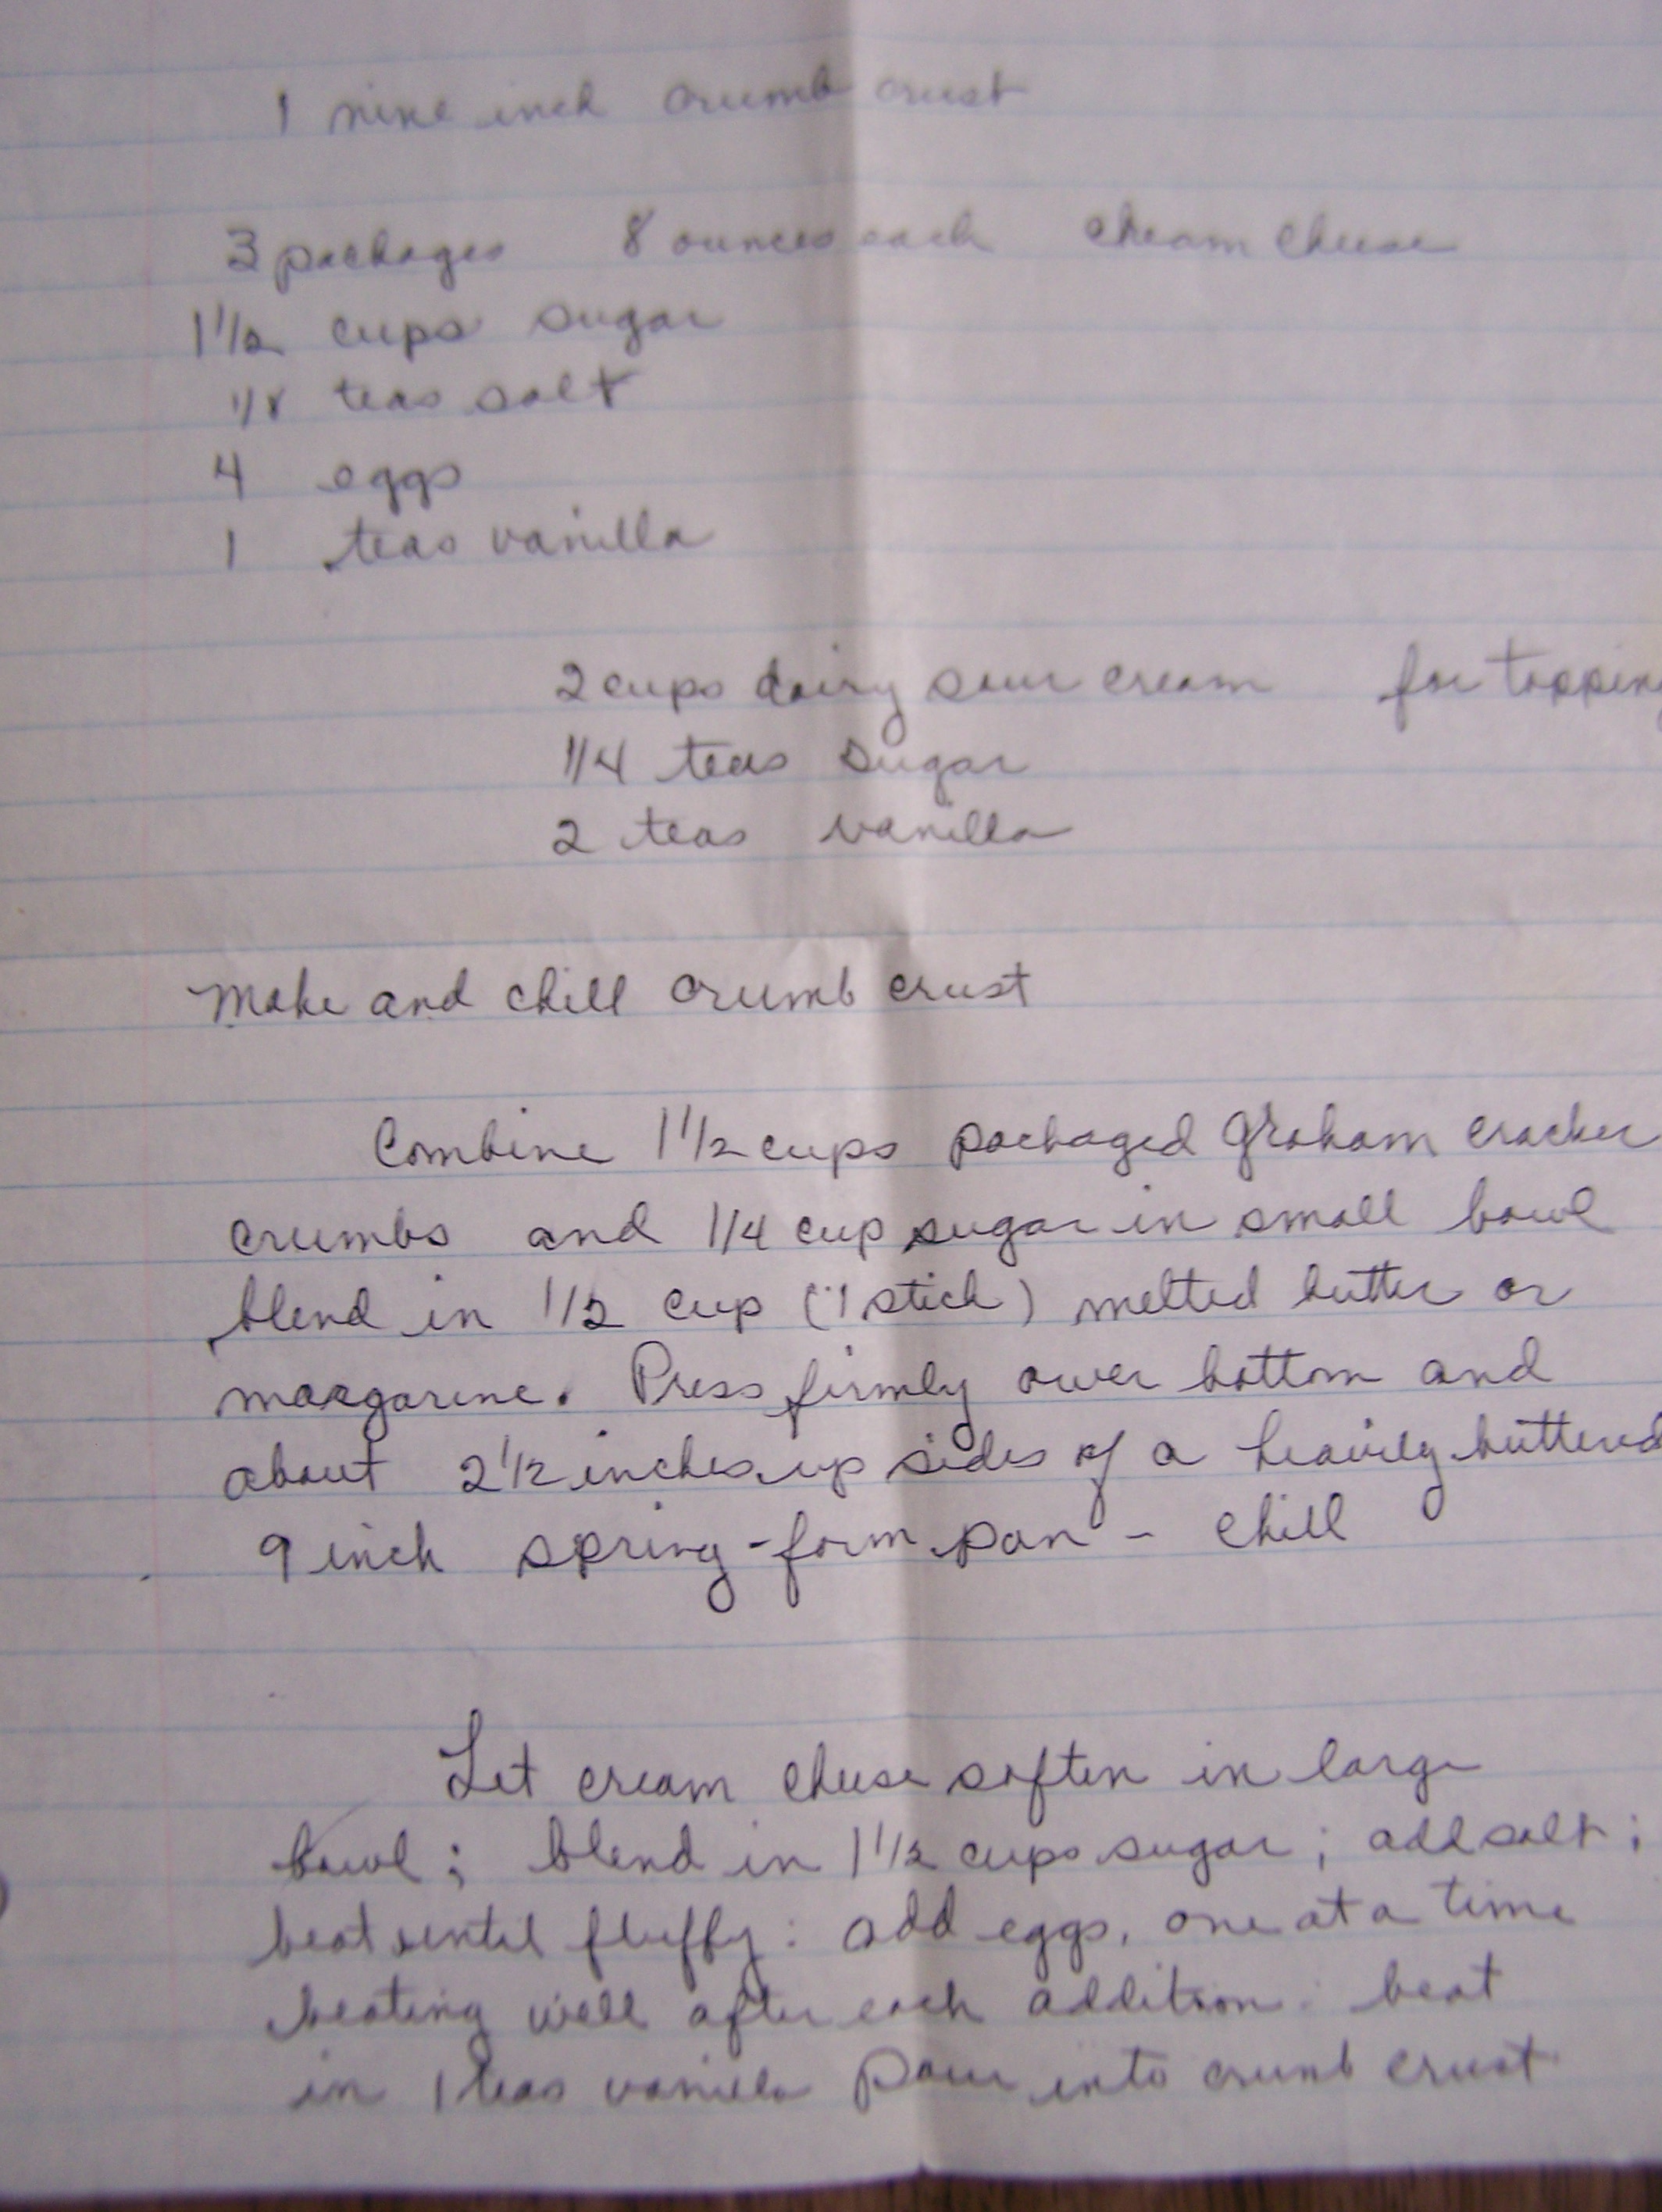 1 nine inch crumb crust
3 packages 8 ounces each cream cheese
1 1/2 cups sugar
1/8 teas salt
4 eggs
1 teas vanilla
2 cups dairy sour cream for topping
1/4 teas sugar
2 teas vanilla
Make and chill crumb crust
Combine 1 1/2 cups packaged graham cracker
crumbs and 1/4 cup sugar in small bowl
blend in 1/2 cup (1 stick) melted butter or
margarine. Press firmly over bottom and
about 2 1/2 inches up sides of a heavily buttered
9 inch spring-form pan - chill
Let cream cheese soften in large
bowl; blend in 1 1/2 cups sugar; add salt;
beat until fluffy: add eggs, one at a time
beating well after each addition: beat
in 1 teas vanilla Pour into crumb crust